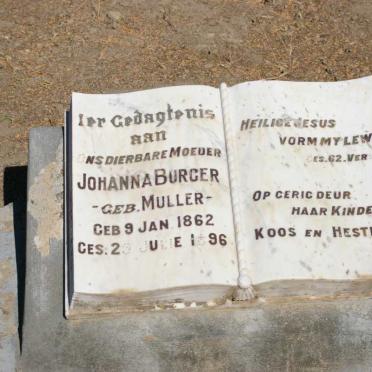 Ter Gedagtenis
aan
Ons dierbare Moeder
Johanna Burger
-Geb. Muller-
Geb 9 Jan. 1862
Ges. Julie 1896
Heilige Jesus
vorm my
Ges. 62. Ver
Opgerig deur
haar Kinde
Koos en Hest